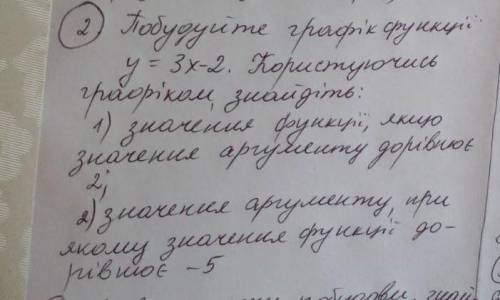 2 Побудуйте графік функції
y = 3x-2. Користуючись
графіком, знайдіть:
1) значення функції, якщо
значення аргументу дорівнює
2;
2) значення аргументу, при
якому значення функції до-
рівнює -5